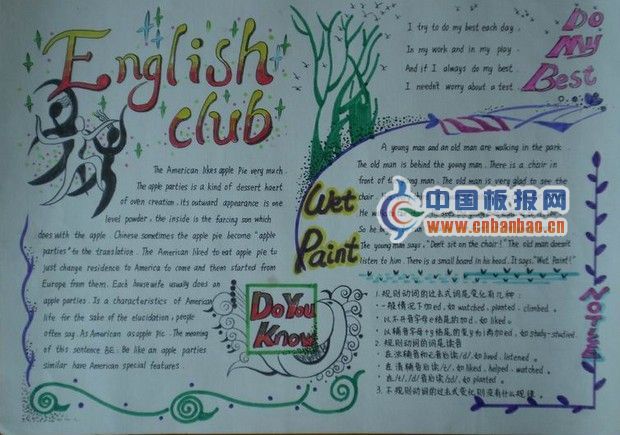 English
club
The American likes apple Pie very much.
The apple parties is a kind of dessert hoert
of oven creation. Its outward appearance is one
level powder, the inside is the farcing son which
does with the apple. Chinese sometimes the apple pie become "apple
parties" to the translation. The American liked to eat apple pie to
just change residence to America to come and them started from
Europe from them. Each housewife usually does an
apple parties. Is a characteristics of American
life for the sake of the elucidation, people
often say: As American as apple pie. The meaning
of this sentence BE: Be like an apple parties
similar have American special features.
I try to do my best each day.
In my work and in my play.
And if I always do my best.
I needn't worry about a test.
Do
My
Best
Wet
Paint
A young man and an old man are walking in the park.
The old man is behind the young man. There is a chair in
front of the young man. The old man is very glad to see the
chair
He
So he
The young man says, "Don't sit on the chair!" The old man doesn't
listen to him. There is a small board in his head. It says, "Wet Paint!"
中国板报网
www.cnbanbao.cn
Do You
Know
1.规则动词的过去式词尾变化有几种:
一般情况下加ed,如 watched, planted, climbed。
以不发音字母e结尾的加d,如 liked。
以辅音字母+y结尾的变y为i再加ed,如 study-studied。
2.规则动词的词尾读音
在浊辅音和元音后读/d/,如 listened。
在清辅音后读/t/,如 liked, helped, watched。
在/t/,/d/音后读/id/,如 planted。
3.不规则动词的过去式变化则没有什么规律。